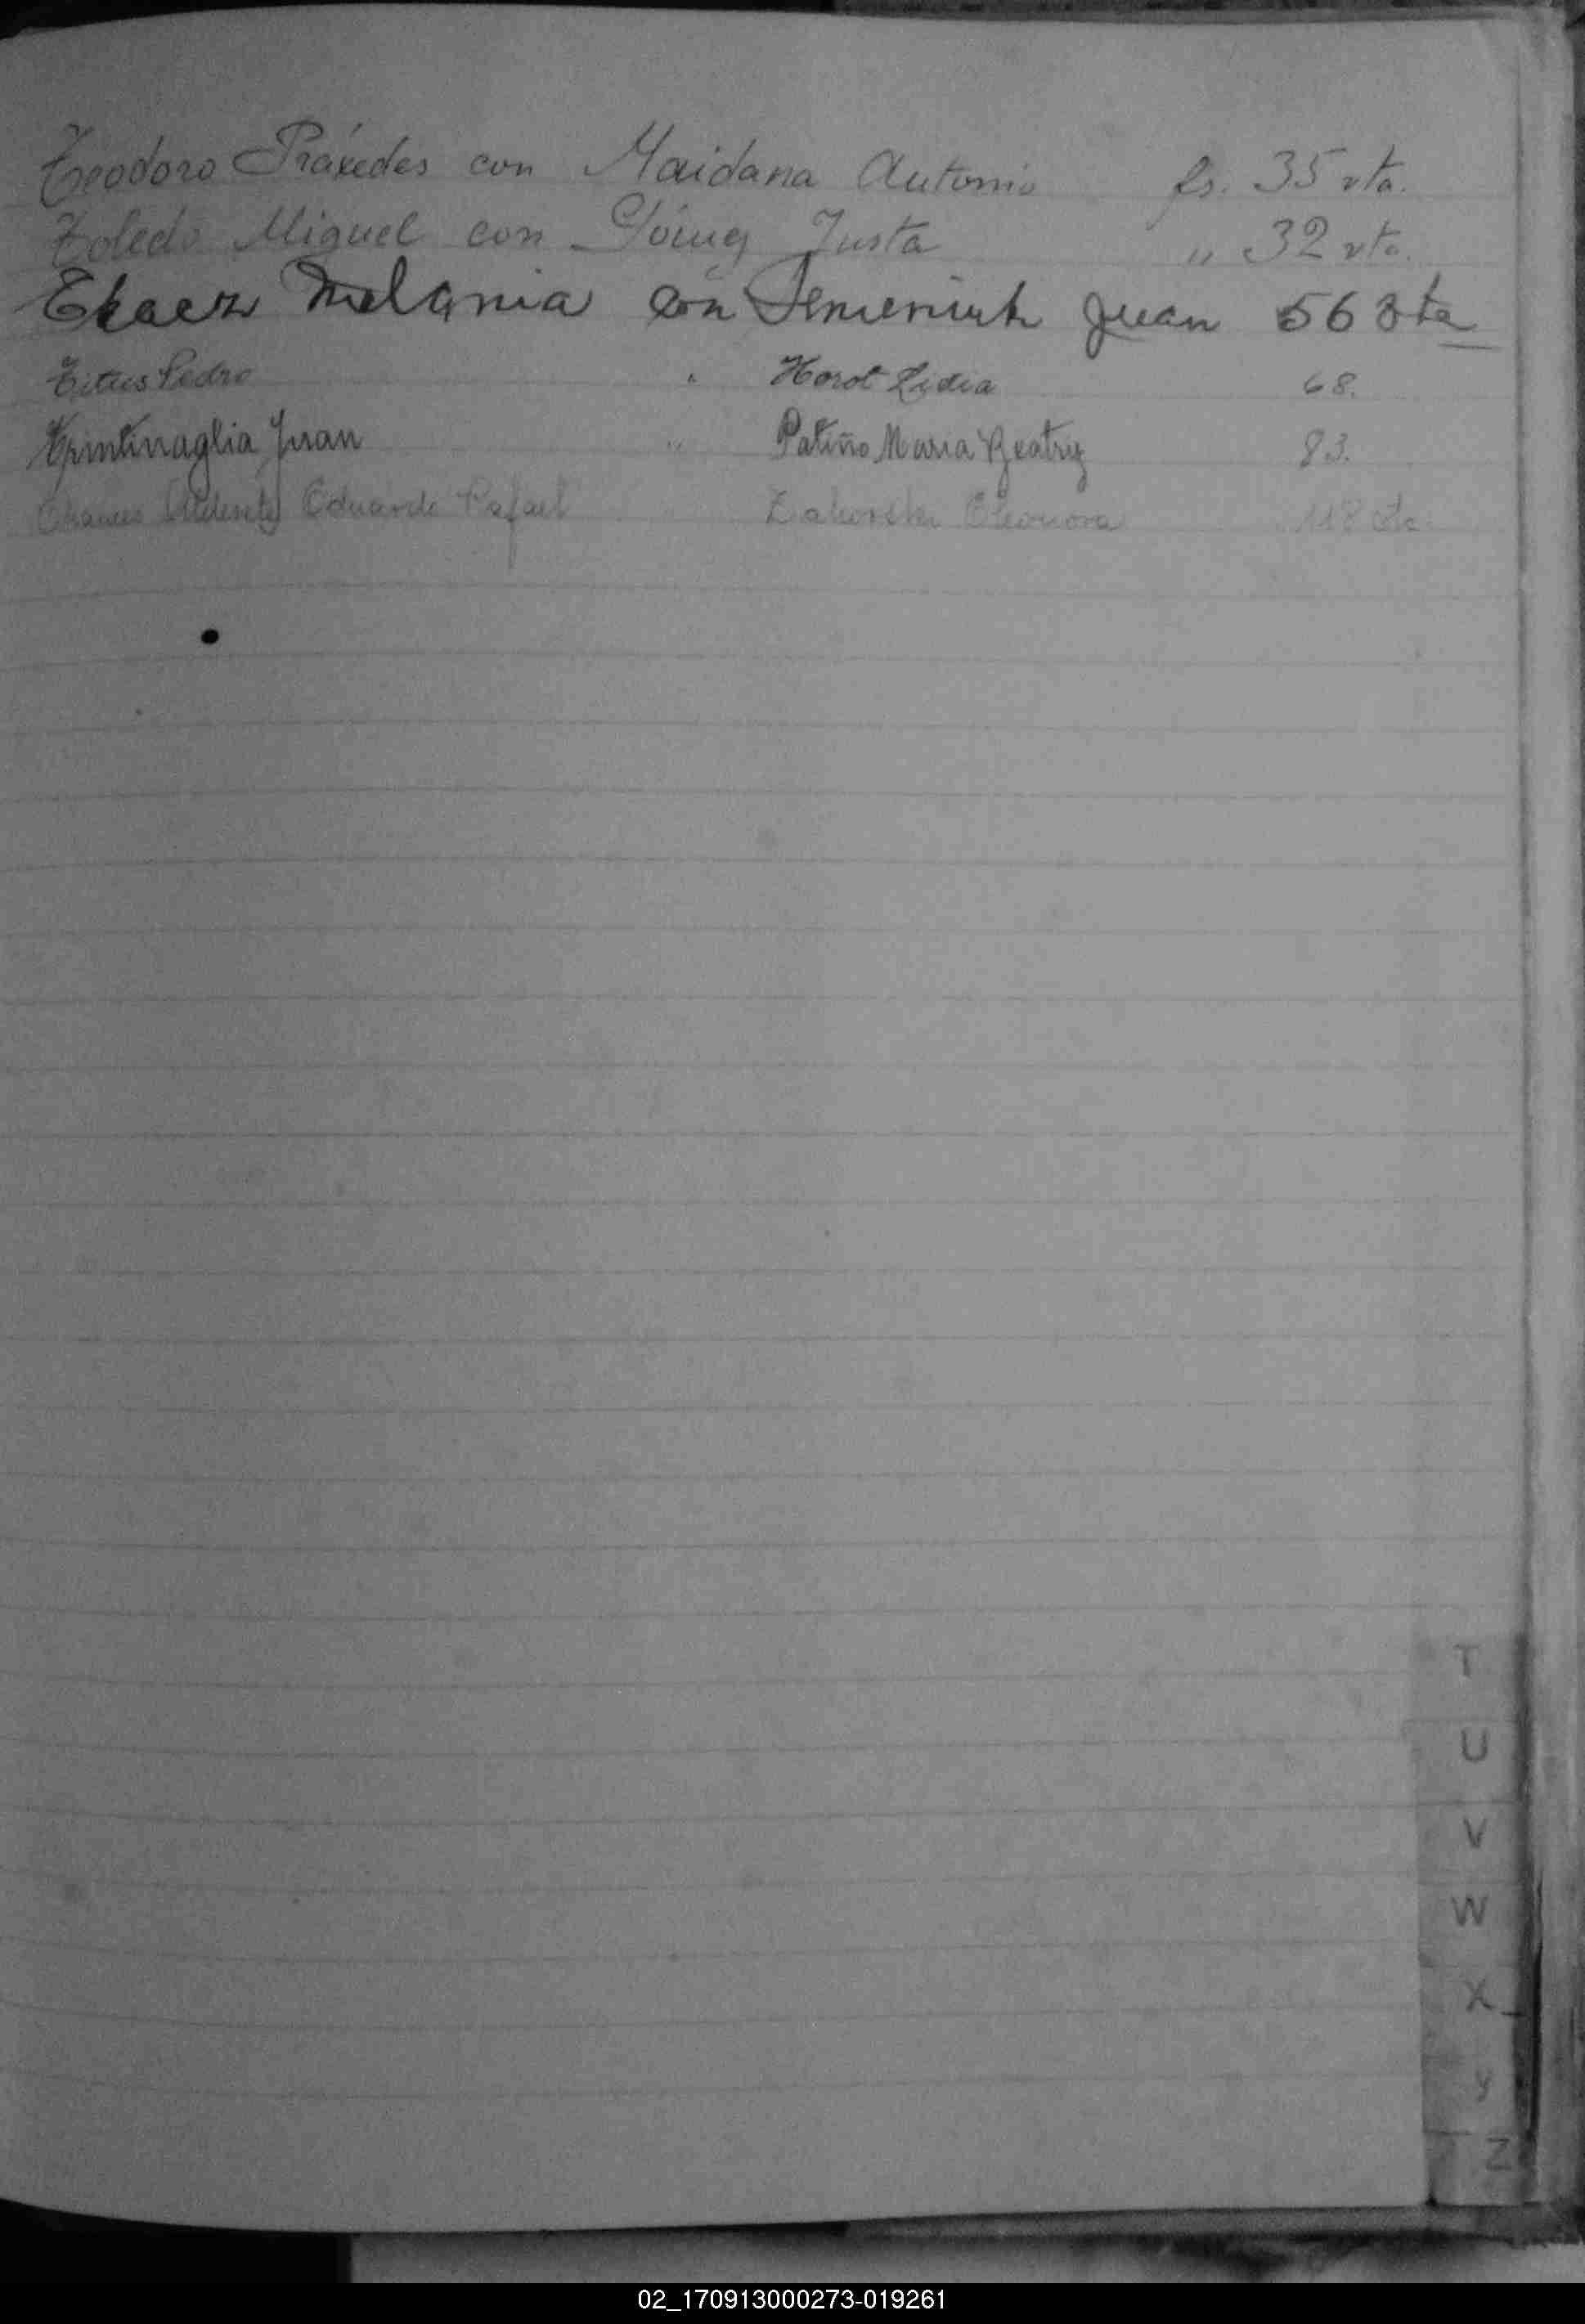 Teodoro Práxedes con Maidana Antonio fs. 35 vta.
Toledo Miguel con Justa " 32 vta.
Tkacz Melania con Semeniuk Juan 56 vta
Titus Pedro " Horot Lidia 68.
Juan " Patiño Maria Beatriz 83.
Eduardo Rafael " Eleonora 118 vta.
T
U
V
W
X
Y
Z
02_170913000273-019261